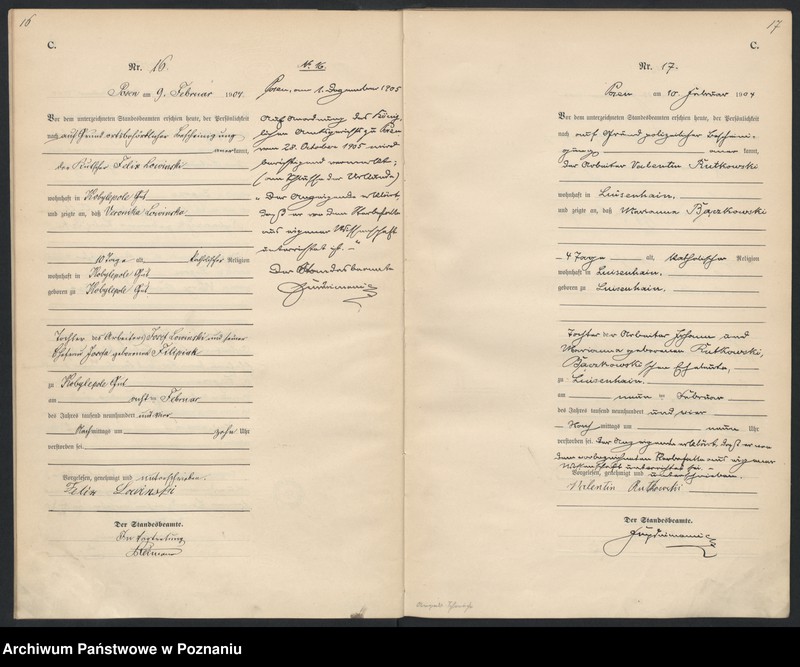 16
C.
Nr. 16
Posen am 9. Februar 1904
Vor dem unterzeichneten Standesbeamten erschien heute, der Persönlichkeit
nach auf Grund ortsbehördlicher Bescheinigung
anerkannt,
der Kutscher Felix Lowinski
wohnhaft in Kobylepole Gut
und zeigte an, daß Veronika Lowinska
10 Tage alt, katholischer Religion
wohnhaft in Kobylepole Gut
geboren zu Kobylepole Gut
Tochter des Arbeiters Josef Lowinski und seiner
Ehefrau Josefa geborenen Filipiak
zu Kobylepole Gut
am acht ten Februar
des Jahres tausend neunhundert und vier
Nachmittags um zehn Uhr
verstorben sei.
Vorgelesen, genehmigt und unterschrieben.
Felix Lowinski
Der Standesbeamte.
In Vertretung
No. 16.
Posen, am 1. Dezember 1905
Auf Anordnung des König-
lichen Amtsgerichts zu Posen
vom 28. October 1905 wird
berichtigend vermerkt:
(am Schlusse der Urkunde)
"Der Anzeigende erklärt,
daß er von dem Sterbefalle
aus eigener Wissenschaft
unterrichtet ist."
Der Standesbeamte
17
C.
Nr. 17.
Posen am 10 Februar 1904
Vor dem unterzeichneten Standesbeamten erschien heute, der Persönlichkeit
nach auf Grund polizeilicher Beschei-
nigung anerkannt,
der Arbeiter Valentin Rutkowski
wohnhaft in Luisenhain.
und zeigte an, daß Marianna Bączkowski
4 Tage alt, katholischer Religion
wohnhaft in Luisenhain.
geboren zu Luisenhain.
Tochter der Arbeiter Johann und
Marianna geborenen Rutkowski,
Bączkowski'schen Eheleute,
zu Luisenhain.
am neun ten Februar
des Jahres tausend neunhundert und vier
Nachmittags um neun Uhr
verstorben sei. Der Anzeigende erklärt, daß er von
dem vorbezeichneten Sterbefalle aus eigener
Wissenschaft unterrichtet sei.
Vorgelesen, genehmigt und unterschrieben.
Valentin Rutkowski
Der Standesbeamte.
Archiwum Państwowe w Poznaniu